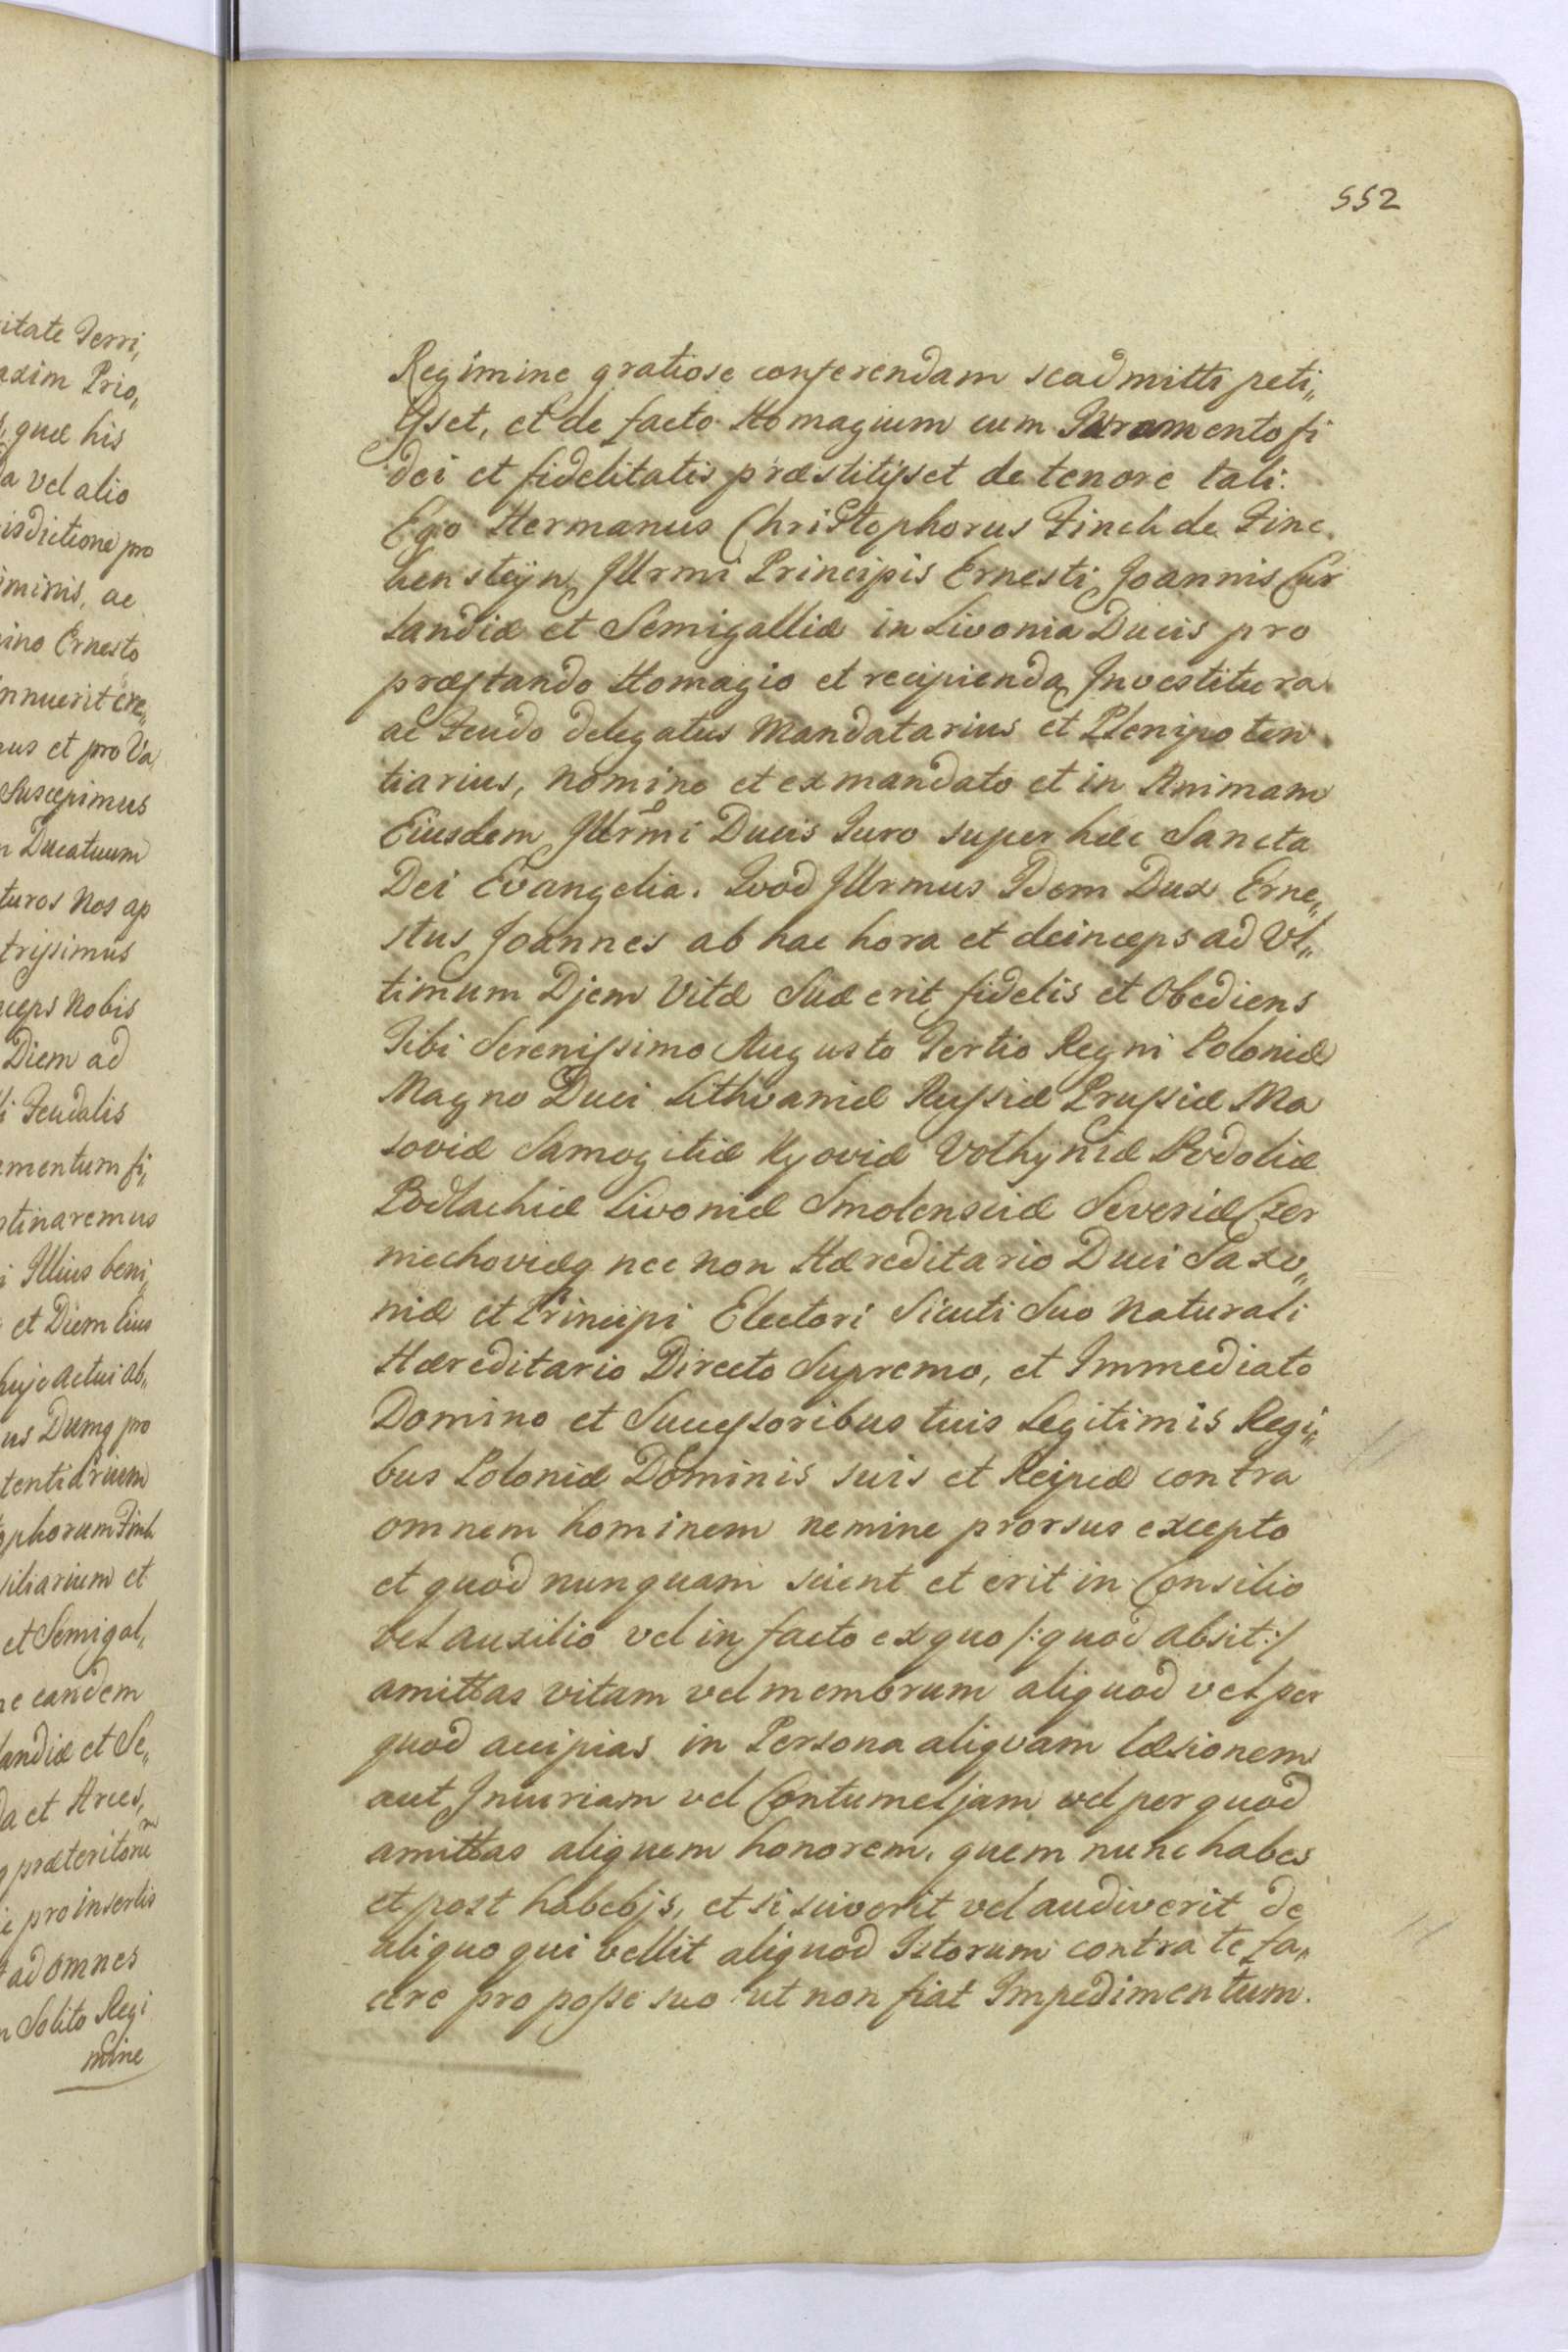 552
itate Terri„
axim Prio„
quæ his
da vel alio
isdictione pro
iminis, ac
ino Ernesto
nnuerit ere„
us et pro Va
Suscepimus
n Ducatuum
turos Nos ap
trissimus
nceps Nobis
Diem ad
i Feudalis
amentum fi„
stinaremus
i Illius beni„
et Diem huis
huic actui ab„
us Dumq pro
tentiarium
ophorum Finh
siliarium et
et Semigal„
ne eandem
landiæ et Se„
da et Arces,
q præteritorum
e pro insertis
ad omnes
n Solito Regi
mine
Regimine gratiose conferendam se admitti peti„
ysset, et de facto Homagium cum Juramento fi
dei et fidelitatis præstitisset de tenore tali.
Ego Hermanus Christophorus Finch de Finc„
kensteyn Illrmi Principis Ernesti Joannis Cur
landiæ et Semigalliæ in Livonia Ducis pro
præstando Homagio et recipienda Investitura
ac Feudo delegatus Mandatarius et Plenipoten„
tiarius, nomine et ex mandato et in Animam
Eiusdem Illrmi Ducis Juro super hæc Sancta
Dei Evangelia. Qvod Illrmus Idem Dux Erne„
stus Joannes ab hac hora et deinceps ad Vl„
timum Djem Vitæ Suæ erit fidelis et Obediens
Tibi Serenissimo Augusto Tertio Regni Poloniæ
Magno Duci Lithvaniæ Russiæ Prussiæ Ma
soviæ Samogitiæ Kyoviæ Volhyniæ Podoliæ
Podlachiæ Livoniæ Smolensciæ Severiæ Czer
niechoviæq nec non Hæreditario Duci Saxo„
niæ et Principi Electori Sicuti Suo Naturali
Hæreditario Directo Supremo, et Immediato
Domino et Successoribus tuis Legitimis Regi„
bus Poloniæ Dominis suis et Reipcæ contra
omnem hominem nemine prorsus excepto
et quod nunquam scient et erit in Consilio
vel auxilio vel in facto ex quo /: quod absit :/
amittas vitam vel membrum aliquod vel per
quod accipias in Persona aliqvam læsionem
aut Iniuriam vel Contumeljam vel per quod
amittas aliquem honorem, quem nunc habes
et post habebjs, et si sciverit vel audiverit de
aliquo qui vellit aliquod Istorum contra te fa„
cere pro posse suo ut non fiat Impedimentum.